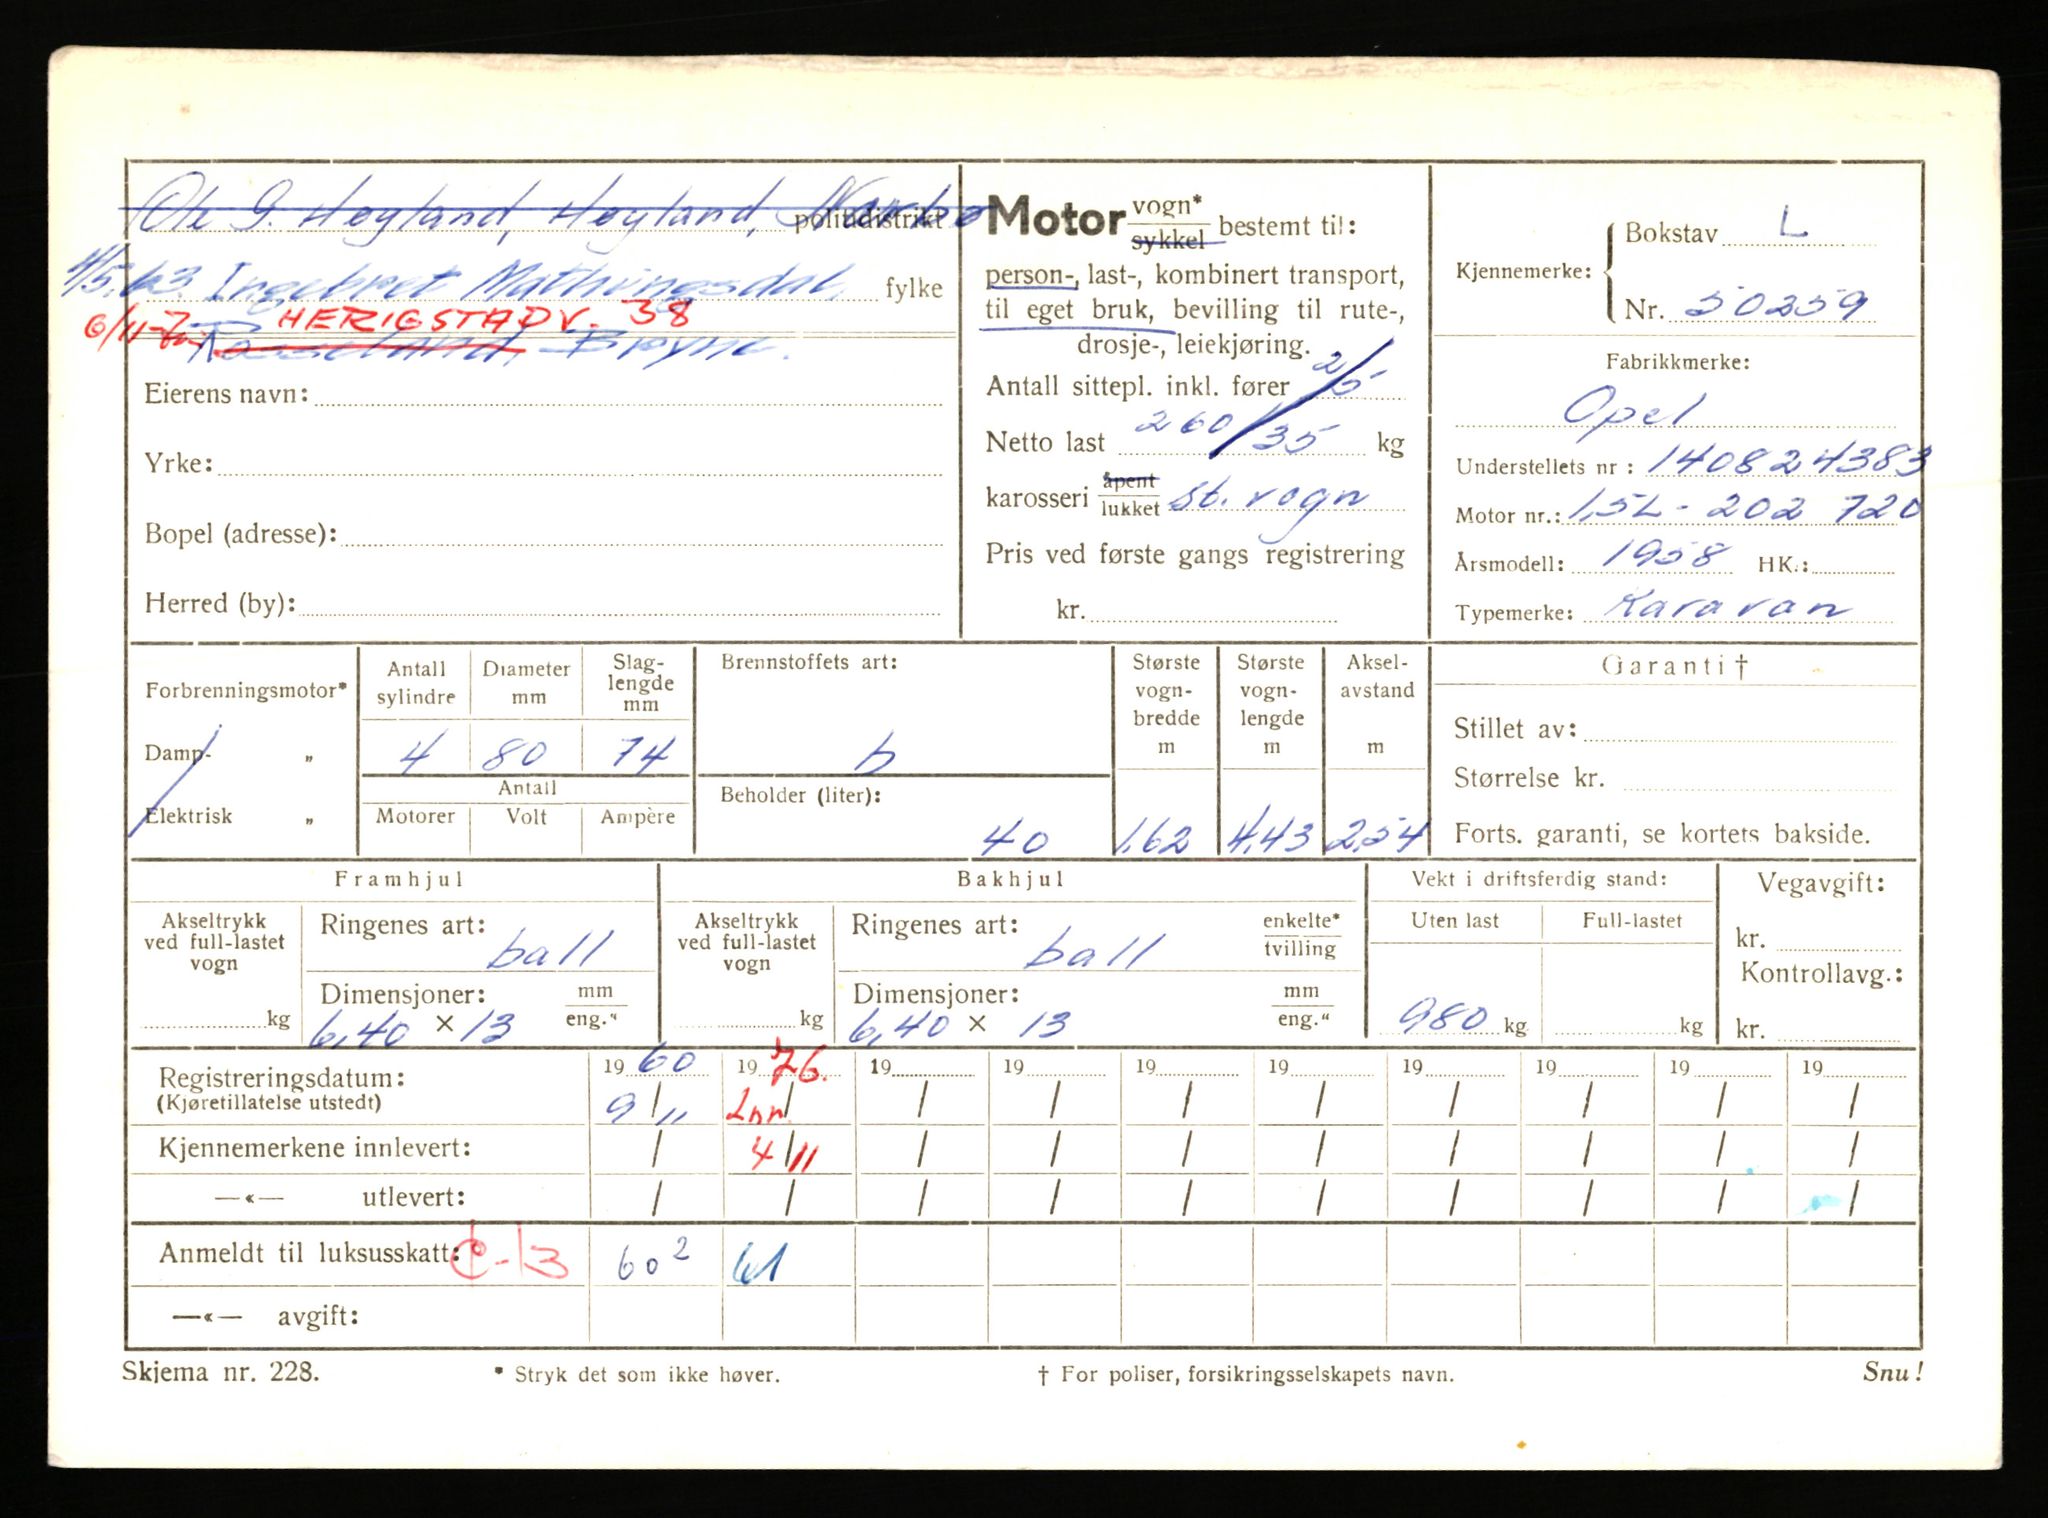 Ole G. Høyland, Høyland, Nærbø politidistrikt
4/5.63. Ingebret Mathingsdal, fylke
6/11-7 HERIGSTADV. 38
Bryne.
Eierens navn:
Yrke:
Bopel (adresse):
Herred (by):
Motor vogn* sykkel bestemt til:
person-, last-, kombinert transport,
til eget bruk, bevilling til rute-,
drosje-, leiekjøring.
Antall sittepl. inkl. fører 2/5
Netto last 260/35 kg
karosseri åpent lukket st. vogn
Pris ved første gangs registrering
kr.
Kjennemerke: Bokstav L
Nr. 50259
Fabrikkmerke:
Opel
Understellets nr: 140824383
Motor nr.: 1,5L-202 720
Årsmodell: 1958 HK.:
Typemerke: Karavan
Forbrenningsmotor*
Damp- „
Elektrisk „
Antall sylindre Diameter mm Slag-lengde mm
4 80 74
Antall
Motorer Volt Ampère
Brennstoffets art:
b
Beholder (liter):
40
Største vogn-bredde m
1,62
Største vogn-lengde m
4,43
Aksel-avstand m
2,54
Garanti †
Stillet av:
Størrelse kr.
Forts. garanti, se kortets bakside.
Framhjul
Akseltrykk ved full-lastet vogn
kg
Ringenes art:
ball
Dimensjoner: mm eng."
6,40 x 13
Bakhjul
Akseltrykk ved full-lastet vogn
kg
Ringenes art: enkelte* tvilling
ball
Dimensjoner: mm eng."
6,40 x 13
Vekt i driftsferdig stand:
Uten last Full-lastet
980 kg kg
Vegavgift:
kr.
Kontrollavg.:
kr.
Registreringsdatum: 1960 1976. 19 19 19 19 19 19 19 19
(Kjøretillatelse utstedt) 9/11 Inn / / / / / / / / /
Kjennemerkene innlevert: / 4/11 / / / / / / / /
—«— utlevert: / / / / / / / / / /
Anmeldt til luksusskatt: C-13 60² 61
—«— avgift:
Skjema nr. 228. * Stryk det som ikke høver. † For poliser, forsikringsselskapets navn. Snu!